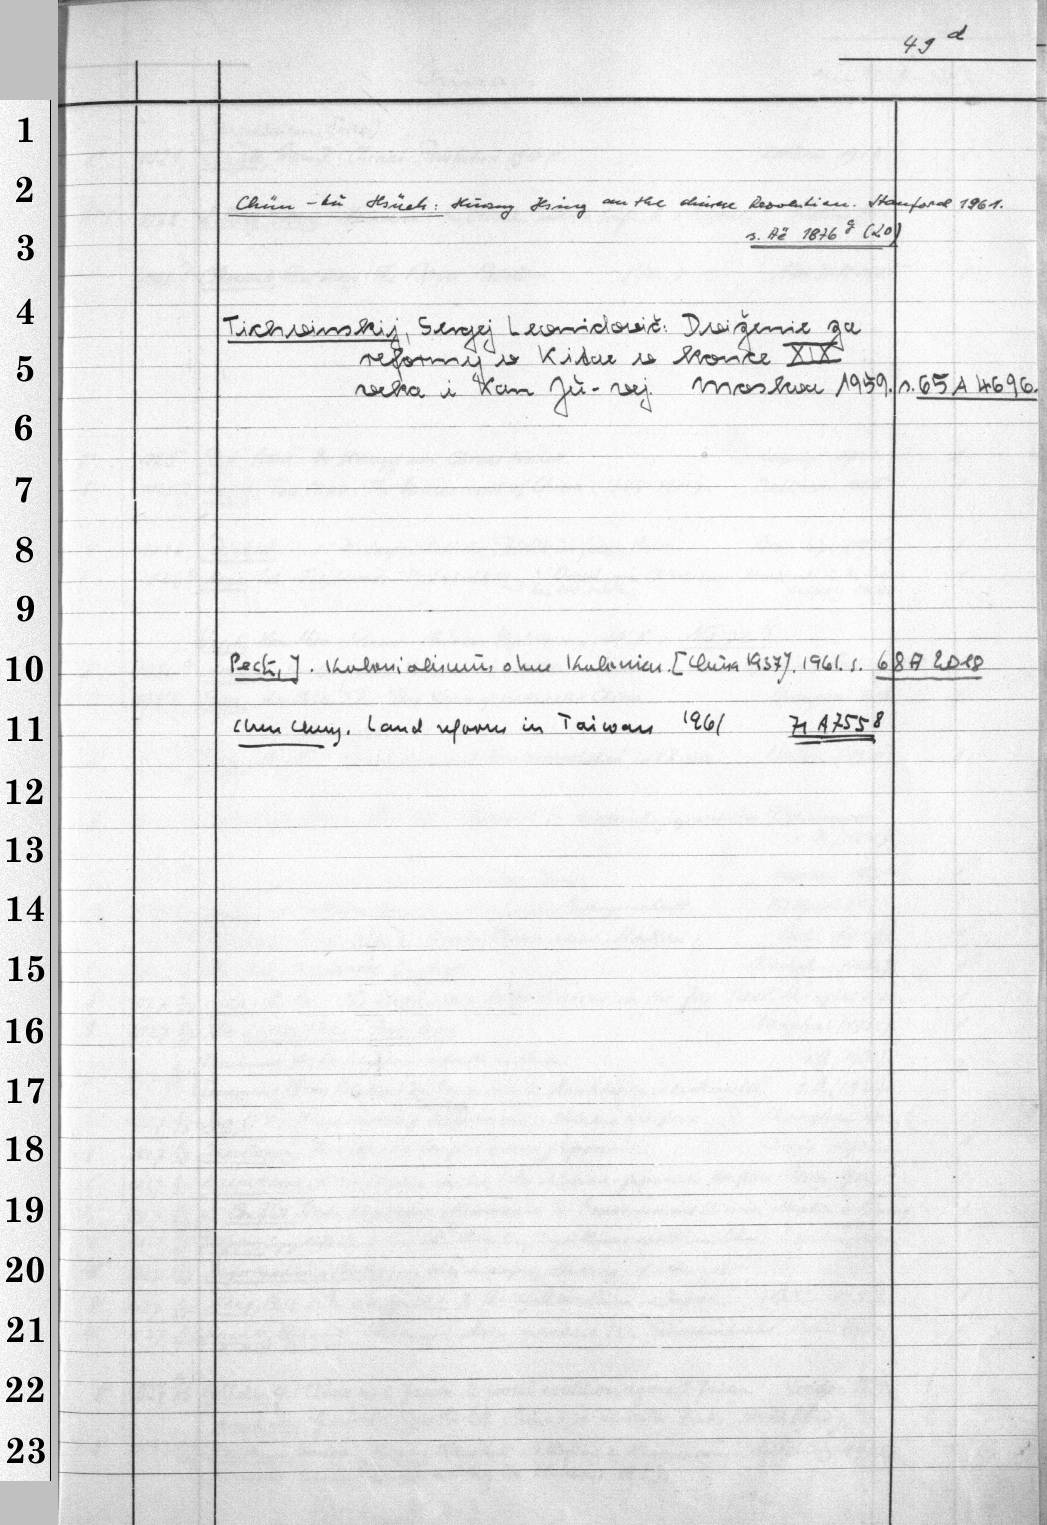 49 d
1
2
Chün-tu Hsüeh: Huang Hsing and the chinese Revolution. Stanford 1961.
3
s. Aë 1876 g (20)
4
Tichwinskij, Sergej Leonidowič: Dwiženie za
reformy w Kitae w konce XIX
5
weka i Kan Jŭ-wej. Moskwa 1959. s. 65 A 4696.
6
7
8
9
10
Peck, J. Kolonialismus ohne Kolonien. [China 1937]. 1961. s. 68 A 2018
11
Chen Cheng. Land reform in Taiwan 1961 71 A 7558
12
13
14
15
16
17
18
19
20
21
22
23